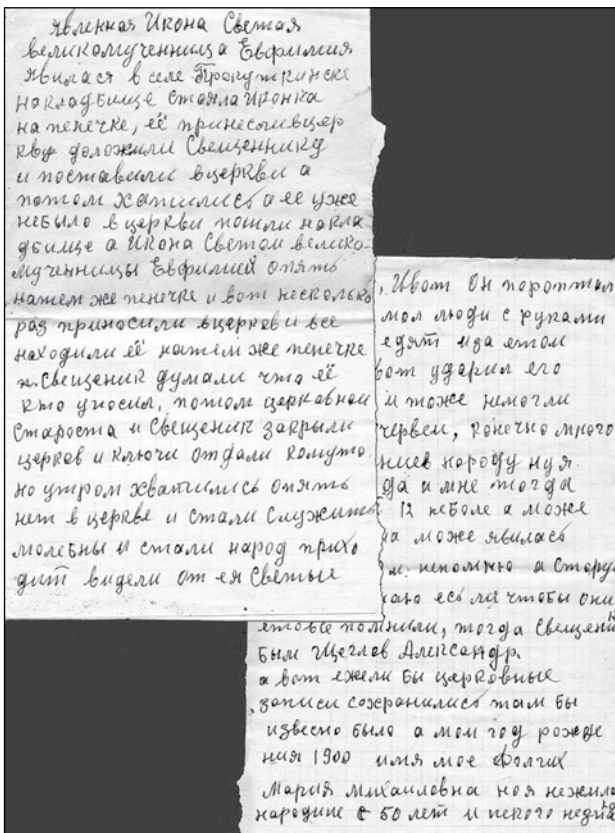 явленная Икона Светая
великомученница Евфимия
явилася в селе Прокуткинске
накладбище стояла иконка
на пенечке, её принесли вцер
квы доложили Свещеннику
и поставили вцеркви а
потом хатились а ее уже
небыло в церкви пошли накла
дбище а Икона Светой велико-
мученницы Евфимией опять
натем же пенечке и вот несколько
раз приносили вцеркови все
находили её натем же пенечке
и. Свещеник думали что её
кто уносил, потом церковной
Староста и Свещеник закрыли
церков и ключи отдали комуто.
но утром хватились опять
нет в церкве и стали Служить
молебны и стали народ прихо
дит видели от ея Светые
, Ивот Он пороптал
мол люди с руками
едят иза етом
вот ударил его
и тоже немогли
червей, конечно много
ниев народу ну я.
да и мне тогда
12 неболе а може
на може явилась
м. непомню а Стору
каю есь ли чтобы они
етовсе помнили, тогда Свещенни
был Щеглов Александр.
а вот ежели бы церковные
записи сохранились там бы
извесно было а мой год рожде
ния 1900 имя мое Долгих
Мария Михайловна ноя нежила
народине с 50 лет и некого незная